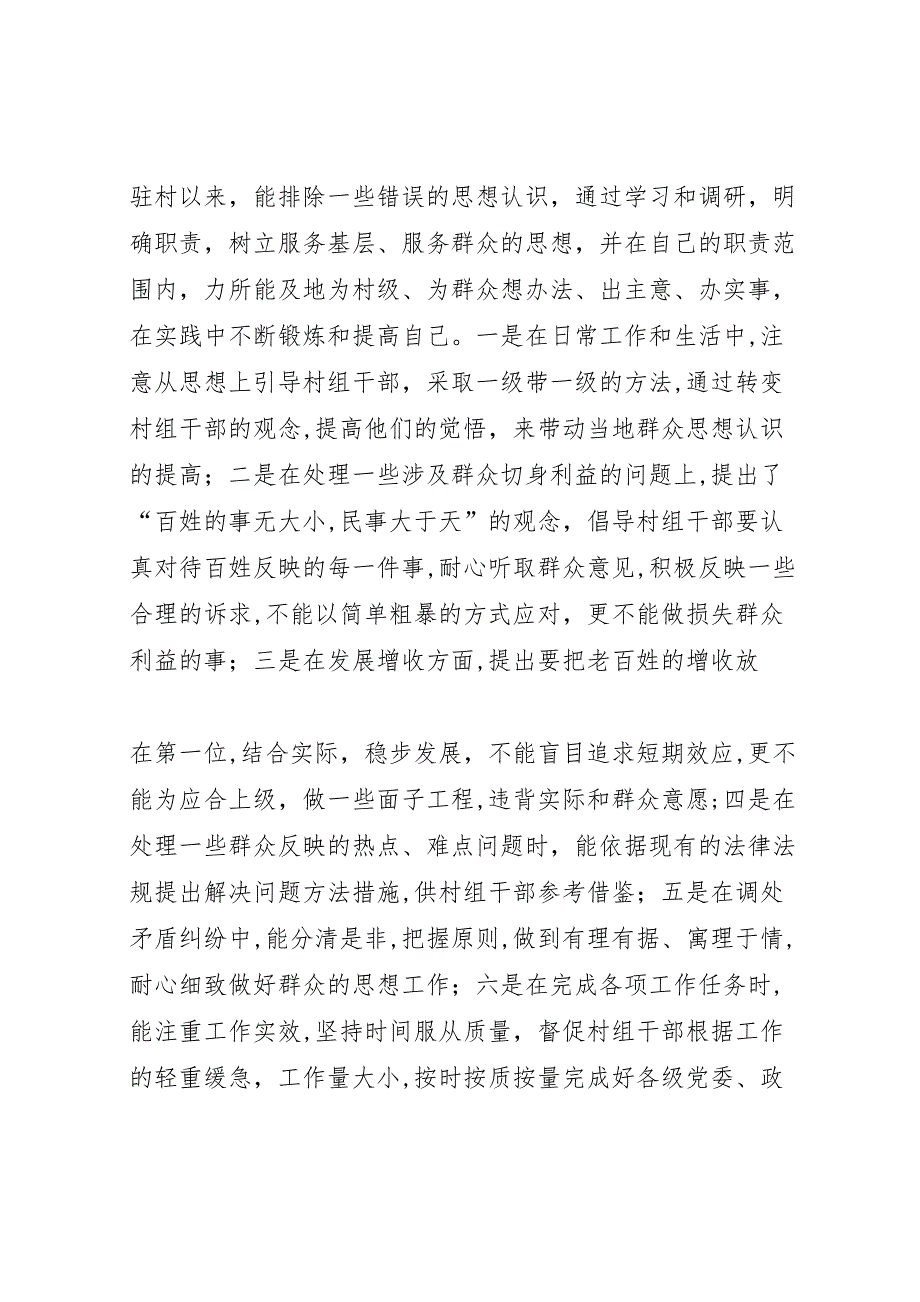 驻村以来，能排除一些错误的思想认识，通过学习和调研，明
确职责，树立服务基层、服务群众的思想，并在自己的职责范
围内，力所能及地为村级、为群众想办法、出主意、办实事，
在实践中不断锻炼和提高自己。一是在日常工作和生活中,注
意从思想上引导村组干部，采取一级带一级的方法,通过转变
村组干部的观念,提高他们的觉悟，来带动当地群众思想认识
的提高；二是在处理一些涉及群众切身利益的问题上,提出了
“百姓的事无大小,民事大于天”的观念，倡导村组干部要认
真对待百姓反映的每一件事,耐心听取群众意见,积极反映一些
合理的诉求,不能以简单粗暴的方式应对，更不能做损失群众
利益的事；三是在发展增收方面,提出要把老百姓的增收放
在第一位,结合实际，稳步发展，不能盲目追求短期效应,更不
能为应合上级，做一些面子工程,违背实际和群众意愿;四是在
处理一些群众反映的热点、难点问题时，能依据现有的法律法
规提出解决问题方法措施,供村组干部参考借鉴；五是在调处
矛盾纠纷中,能分清是非,把握原则,做到有理有据、寓理于情,
耐心细致做好群众的思想工作；六是在完成各项工作任务时,
能注重工作实效,坚持时间服从质量，督促村组干部根据工作
的轻重缓急，工作量大小,按时按质按量完成好各级党委、政